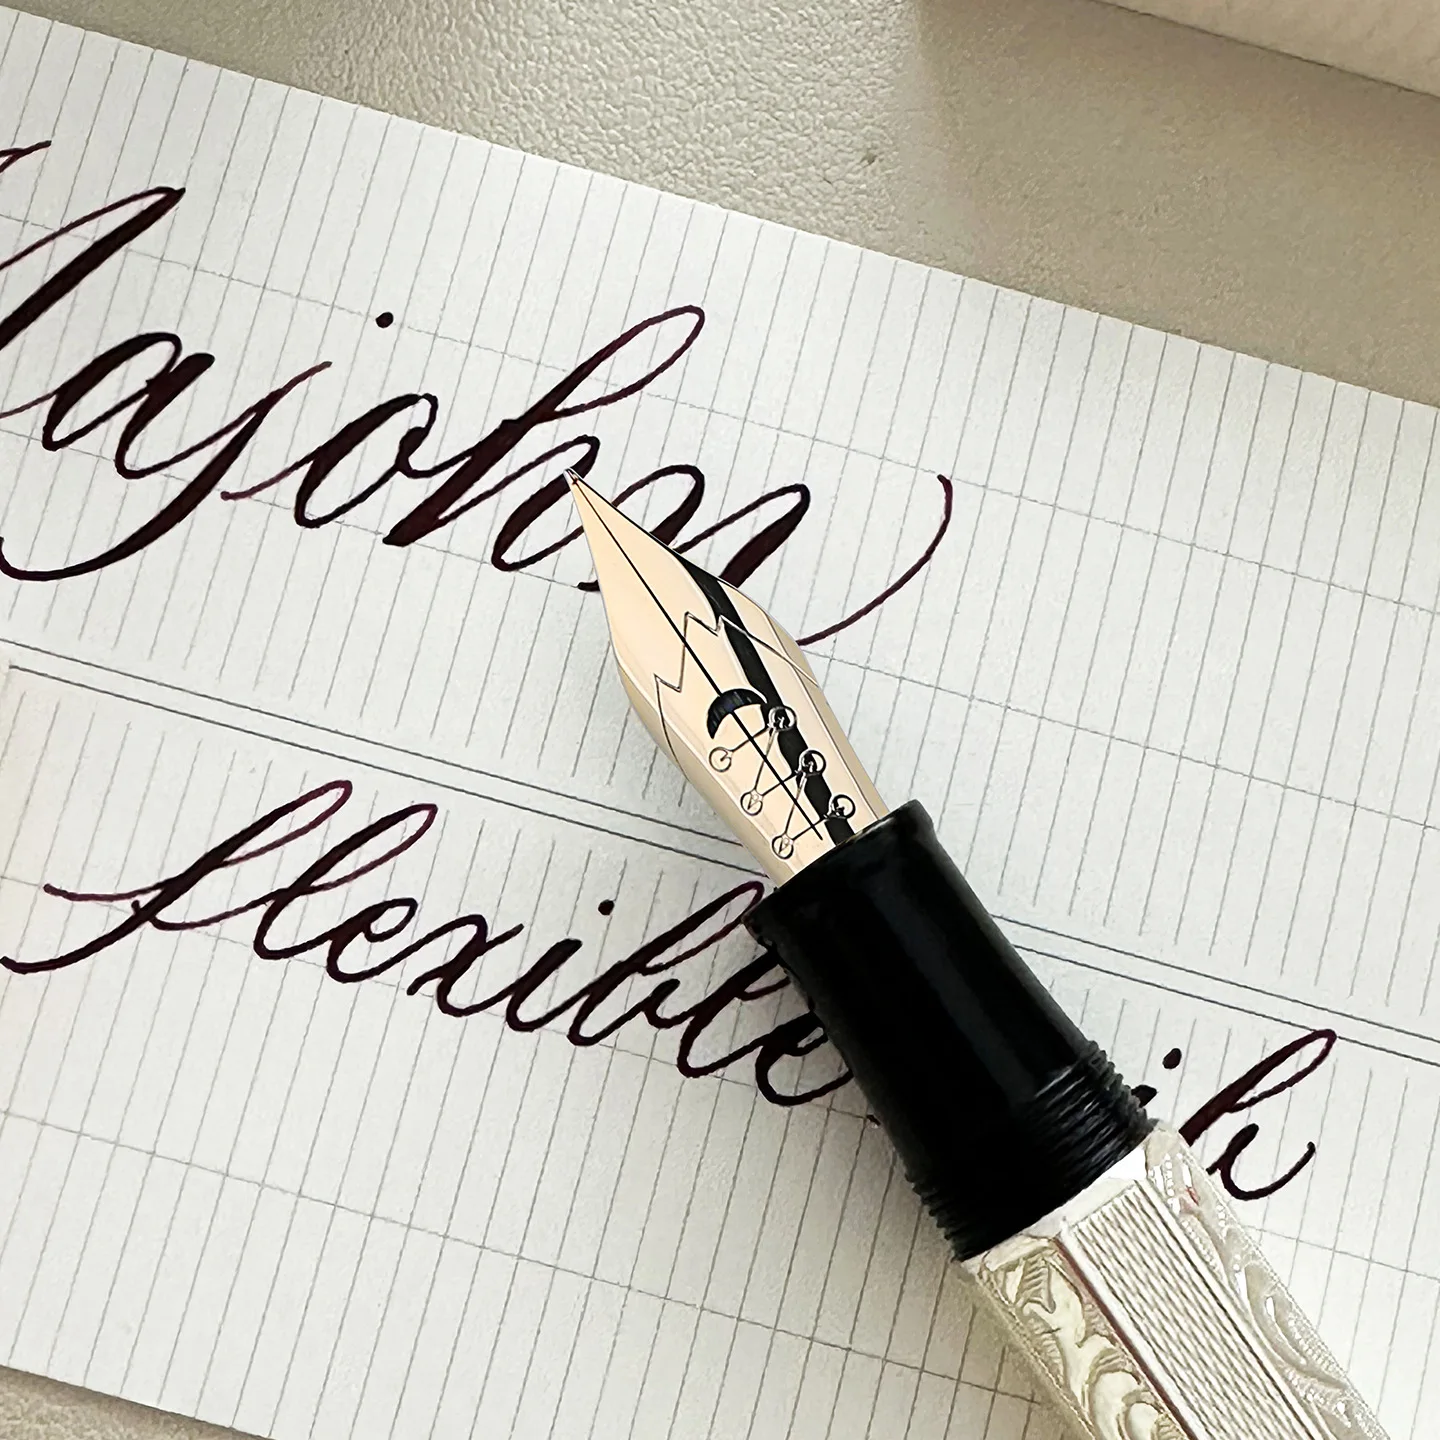 Majohn
flexible